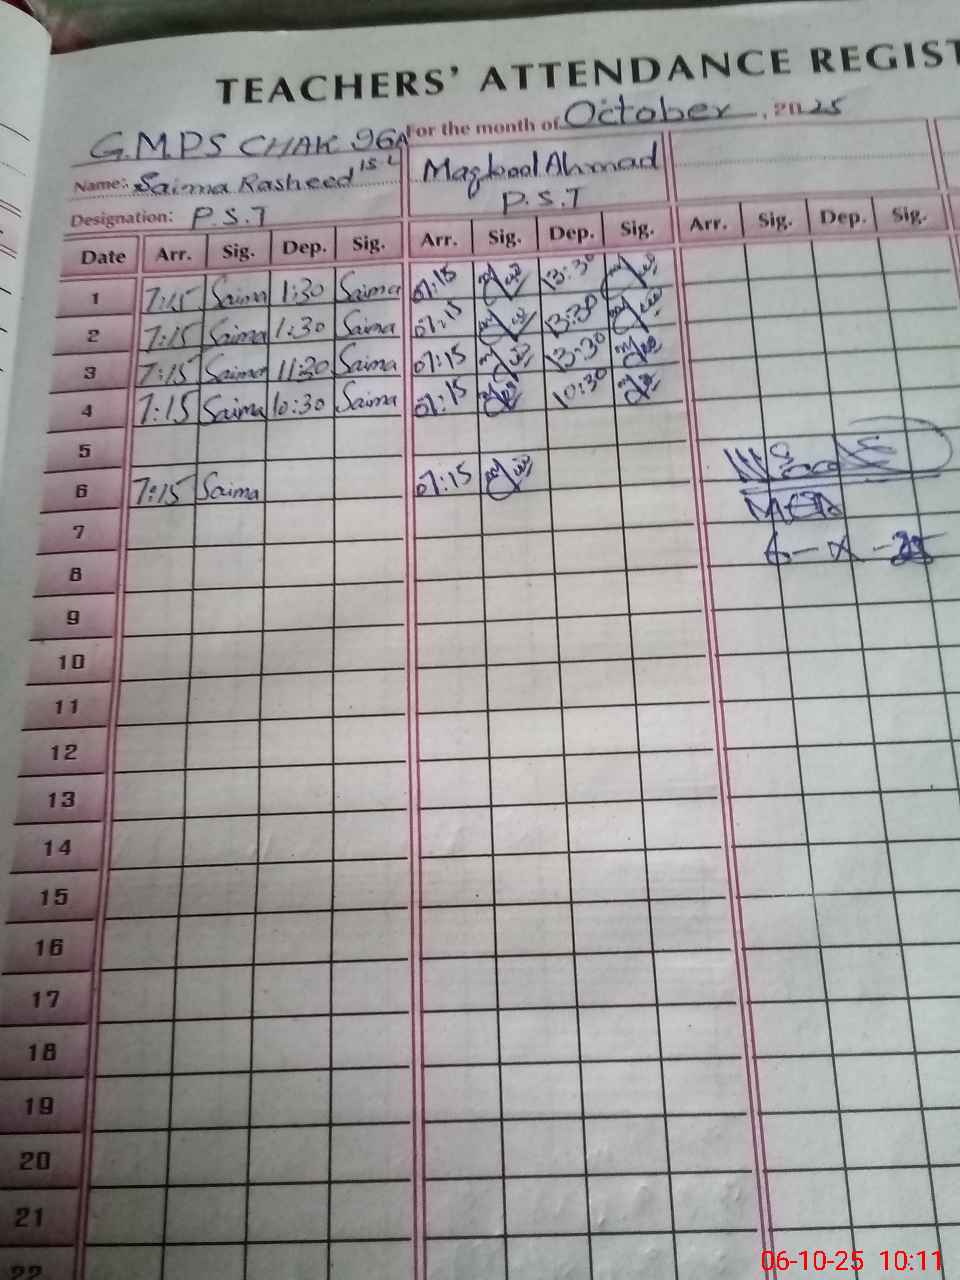 TEACHERS' ATTENDANCE REGIST
For the month of October, 2025
G.M.P.S CHAK 96A
15-L
Name: Saima Rasheed Maqbool Ahmad
Designation: P.S.T P.S.T
Date Arr. Sig. Dep. Sig. Arr. Sig. Dep. Sig. Arr. Sig. Dep. Sig.
1 7:15 Saima 1:30 Saima 07:15 13:30
2 7:15 Saima 1:30 Saima 07:15 13:30
3 7:15 Saima 11:30 Saima 07:15 13:30
4 7:15 Saima 10:30 Saima 07:15 10:30
5
6 7:15 Saima 07:15
MEA
7
6-X-25
8
9
10
11
12
13
14
15
16
17
18
19
20
21
22
06-10-25 10:11